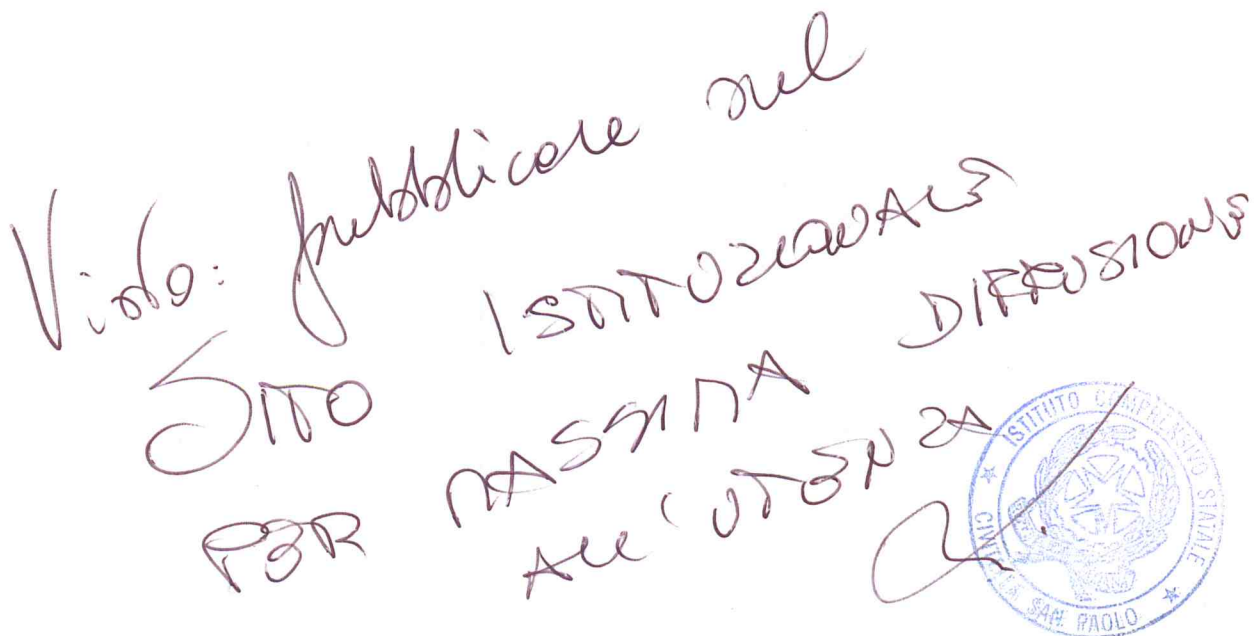 Visto: pubblicare sul
SITO ISTITUZIONALE
PER MASSIMA DIFFUSIONE
ALL'UTENZA
ISTITUTO COMPRENSIVO STATALE
CIVITELLA SAN PAOLO